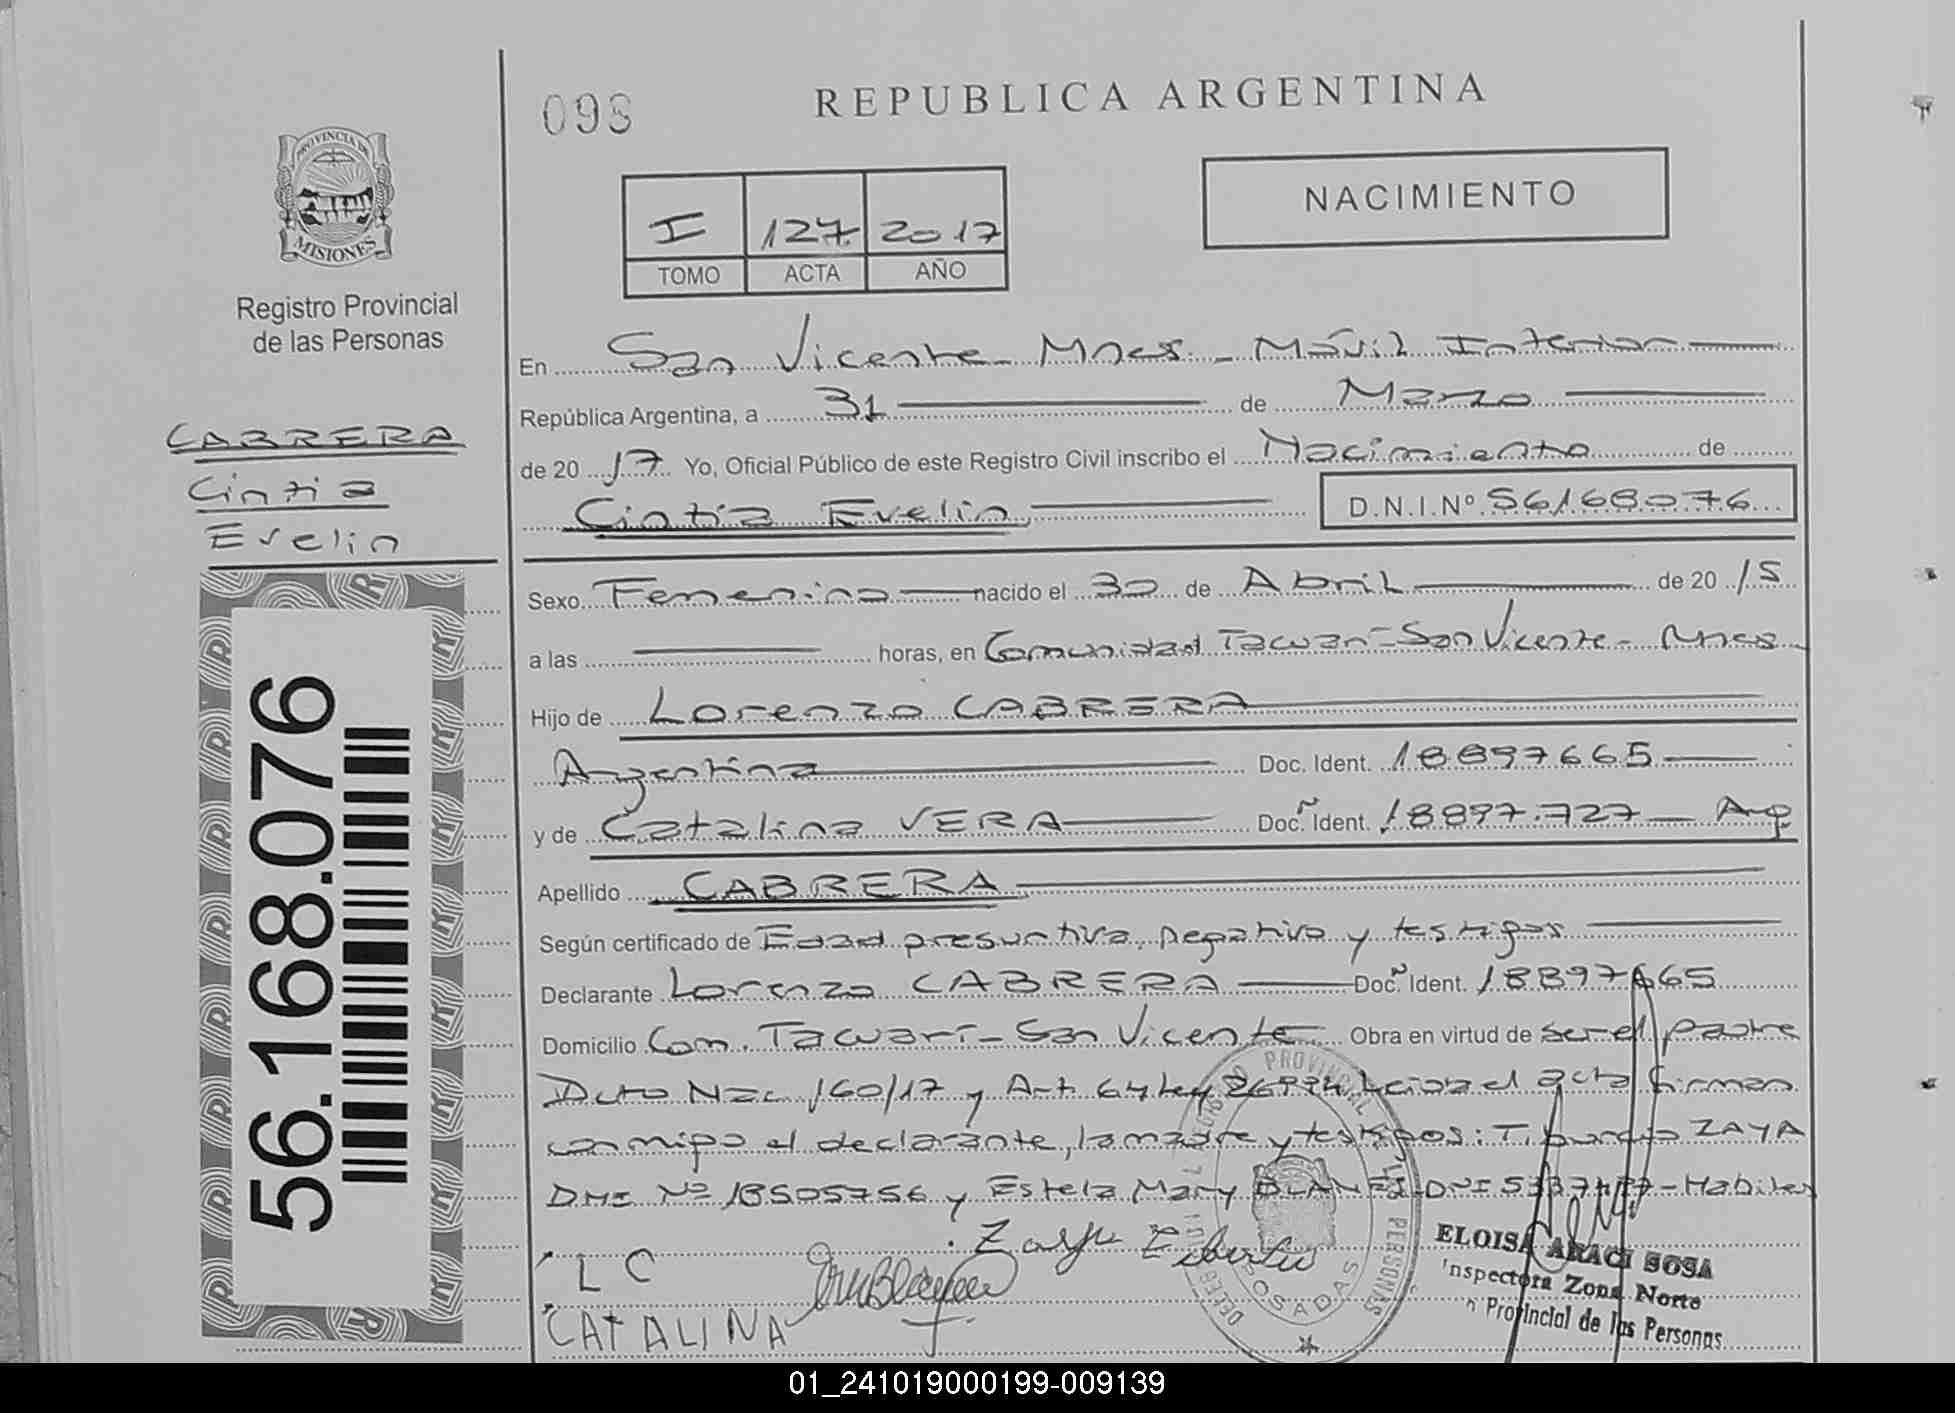 098
REPUBLICA ARGENTINA
PROVINCIA DE
MISIONES
Registro Provincial
de las Personas
I 127 2017
TOMO ACTA AÑO
NACIMIENTO
CABRERA
Cintia
Evelin
56.168.076
En San Vicente - Mnes. - Móvil Interior
República Argentina, a 31 de Marzo
de 20 17 Yo, Oficial Público de este Registro Civil inscribo el Nacimiento de
Cintia Evelin D.N.I.Nº 56168076
Sexo Femenino nacido el 30 de Abril de 20 15
a las horas, en Comunidad Tacuarí - San Vicente - Mnes
Hijo de Lorenzo CABRERA
Argentina Doc. Ident. 18897665
y de Catalina VERA Doc. Ident. 18897.727 - Arg
Apellido CABRERA
Según certificado de Edad presuntiva, negativo y testigos
Declarante Lorenzo CABRERA Doc. Ident. 18897665
Domicilio Com. Tacuarí - San Vicente Obra en virtud de ser el padre
Dcto Nac 160/17 y Art. 64 Ley 26994 Leida el acta firman
conmigo el declarante, la madre y testigos: Tiburcio ZAYA
DNI Nº 18505756 y Estela Mary DNI - Habiles
L C
CATALINA
PROVINCIAL
PERSONAS
POSADAS
ELOISA ARACI SOSA
Inspectora Zona Norte
Provincial de las Personas
01_241019000199-009139